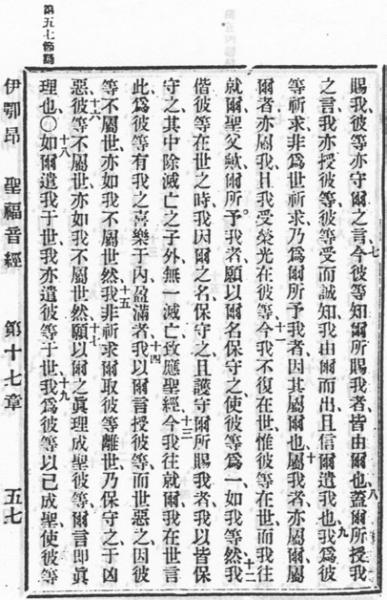 賜我彼等亦守爾之言七今彼等知爾所賜我者皆由爾也八蓋爾所授我
之言我亦授彼等彼等受而誠知我由爾而出且信爾遣我也九我為彼
等祈求非為世祈求乃為爾所予我者因其屬爾也十屬我者亦屬爾屬
爾者亦屬我且我受榮光在彼等十一今我不復在世惟彼等在世而我往
就爾聖父歟爾所予。我者願以爾名保守之使彼等為一如我等然十二我
偕彼等在世之時我因爾之名保守之且護守爾所賜我者我以皆保
守之其中除滅亡之子外無一滅亡致應聖經十三今我往就爾我在世言
此為彼等有我之喜樂于內盈滿者十四我以爾言授彼等而世惡之因彼
等不屬世亦如我不屬世然十五我非祈求爾取彼等離世乃保守之于凶
惡十六彼等不屬世亦如我不屬世然十七願以爾之眞理成聖彼等爾言即眞
理也〇十八如爾遣我于世我亦遣彼等于世十九我為彼等以已成聖使彼等
伊鄂昂 聖福音經 第十七章 五七